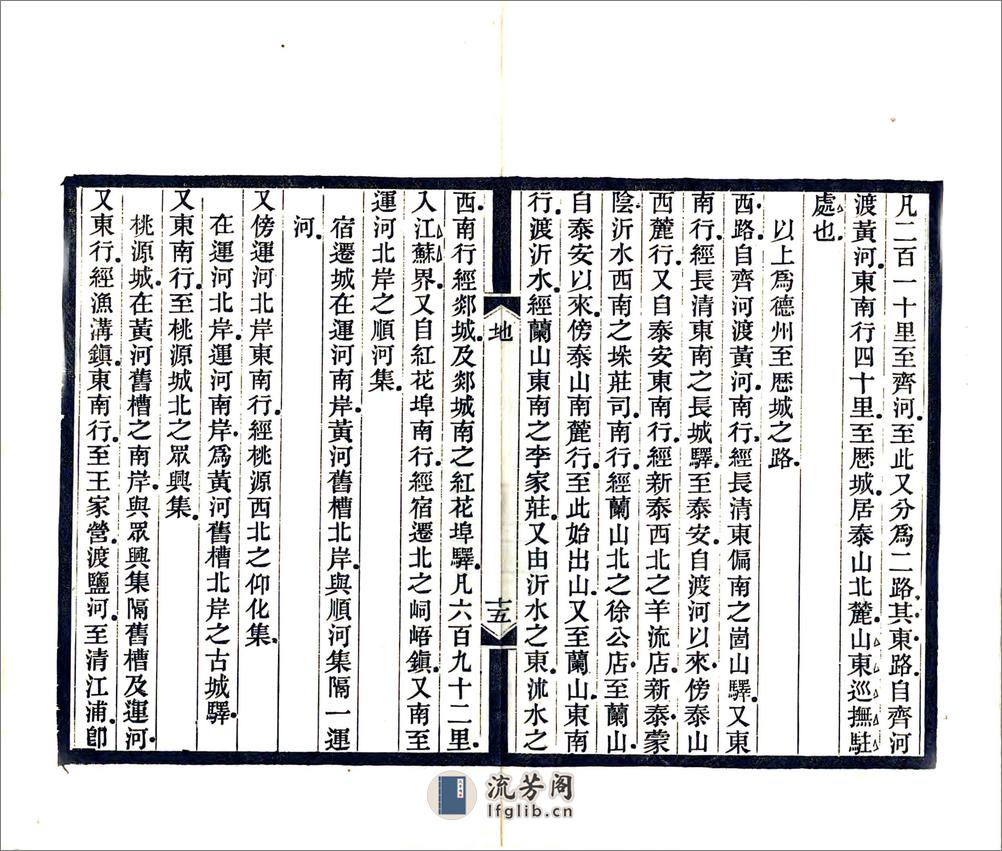 凡二百一十里至齊河至此又分爲二路其東路自齊河
渡黃河東南行四十里至歷城居泰山北麓山東巡撫駐
處也
以上爲德州至歷城之路
西路自齊河渡黃河南行經長清東偏南之崮山驛又東
南行經長清東南之長城驛至泰安自渡河以來傍泰山
西麓行又自泰安東南行經新泰西北之羊流店新泰蒙
陰沂水西南之垛莊司南行經蘭山北之徐公店至蘭山
自泰安以來傍泰山南麓行至此始出山又至蘭山東南
行渡沂水經蘭山東南之李家莊又由沂水之東沭水之
地
十五
西南行經郯城及郯城南之紅花埠驛凡六百九十二里
入江蘇界又自紅花埠南行經宿遷北之峒峿鎮又南至
運河北岸之順河集
宿遷城在運河南岸黃河舊槽北岸與順河集隔一運
河
又傍運河北岸東南行經桃源西北之仰化集
在運河北岸運河南岸爲黃河舊槽北岸之古城驛
又東南行至桃源城北之眾興集
桃源城在黃河舊槽之南岸與眾興集隔舊槽及運河
又東行經漁溝鎮東南行至王家營渡鹽河至清江浦卽
流芳阁
lfglib.cn